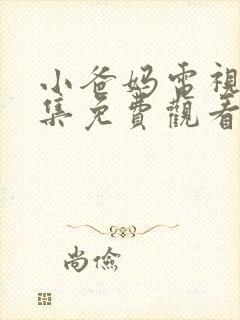 小爸妈電視
集免費觀看
尚儉